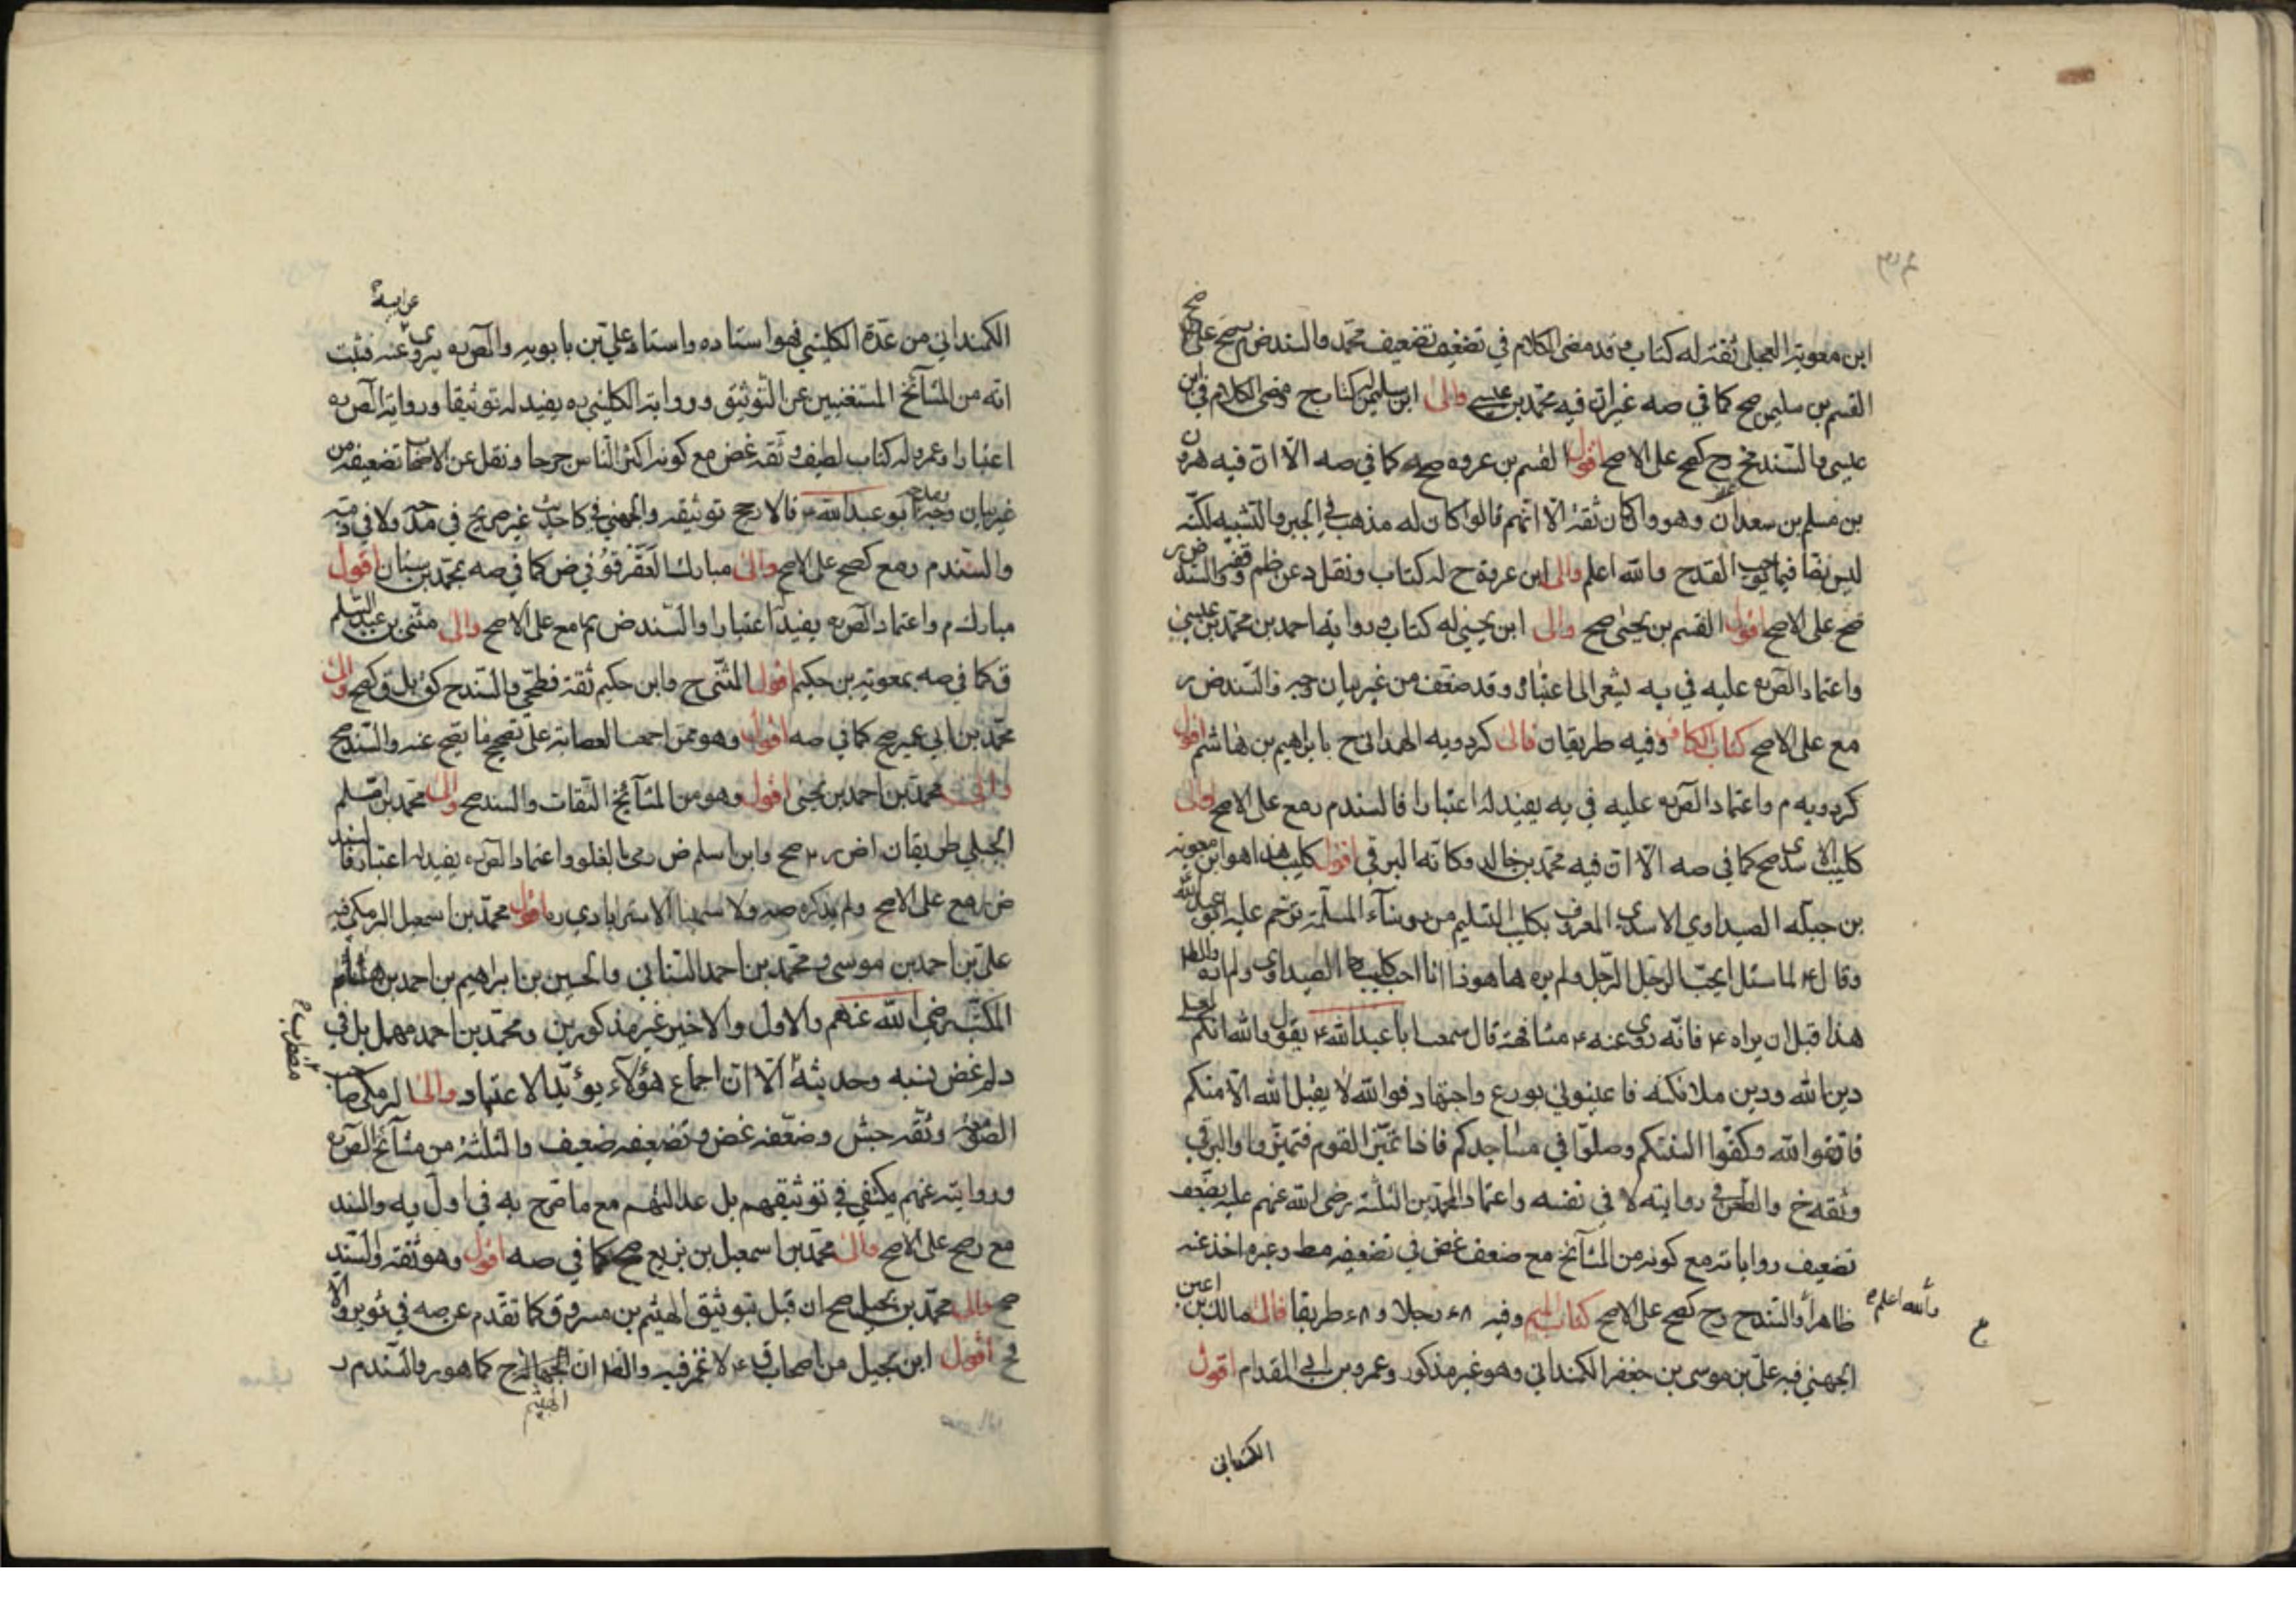 ابن معوية العجلي ثقة له كتاب وقد مضى الكلام في تضعيف محمد والسند ض صح على
القسم بن سليمن صح كما في صه غير ان فيه محمد بن عيسى والى ابن سليمن له كتاب ح ومضى الكلام في ابن
عيسى والسند ح كصح على الاصح اقول القسم بن عروه صح كما في صه الا ان فيه هرون
بن مسلم بن سعدان وهو وان كان ثقة الا انهم قالوا كان له مذهب في الجبر والتشبيه لكنه
ليس نصا فيما يوجب القدح والله اعلم والى ابن عروة ح له كتاب ونقل والسند
ضح على الاصح اقول القسم بن يحيى صح والى ابن يحيى له كتاب وروايه احمد بن محمد بن عيسى
واعتماد الصره عليه في يه يشعر الى اعتباره وقد ضعف من غير بيان وجه فالسند ض ر
مع على الاصح كتاب الكاف وفيه طريقان فالى كردويه الهمداني ح بابراهيم بن هاشم اقول
كردويه م واعتماد الصره عليه في يه يفيد له اعتبارا فالسند م رمع على الاصح والى
كليب الاسدي صح كما في صه الا ان فيه محمد بن خالد وكانه البرقي اقول كليب هذا هو ابن معوية
بن جبلة الصيداوي الاسدي المعروف بكليب التسليم ترحم عليه ابو عبد الله
وقال ع لما سئل ايحب الرجل الرجل ولم يره ها هوذا انا احب كليب الصيداوي ولم اره
هذا قبل ان يراه ع فانه روى عنه ع مشافهة قال سمعت ابا عبد الله ع يقول والله انكم لعلى
دين الله ودين ملائكته فاعينوني بورع واجتهاد فوالله لا يقبل الله الا منكم
فاتقوا الله وكفوا السنتكم وصلوا في مساجدكم فاذا تميز القوم فتميزوا والبرقي
وثقه خ والطعن في روايته لا في نفسه واعتماد المحمدين الثلثة رضي الله عنهم عليه يضعف
تضعيف رواياته مع كونه من المشائخ مع ضعف غض في تضعيفه مط وغيره اخذ عنه
ظاهرا والسند ح رح كصح على الاصح كتاب الميم وفيه ٤٨ رجلا و ٤٨ طريقا فالى مالك بن اعين
والله اعلم
الجهني فيه علي بن موسى بن جعفر الكمنداني وهو غير مذكور وعمرو بن ابي المقدام اقول
الكمنداني
الكمنداني من عدة الكليني فهو استاده واستاد علي بن بابويه والصره يروي عن ابيه عنه فثبت
انه من المشائخ المستغنيين عن التوثيق ورواية الكليني ره يفيد له توثيقا ورواية الصره
اعتبارا وعمرو له كتاب لطيف وثقه غض مع كونه اكثر الناس جرحا ونقل عن الاصحاب تضعيفه من
غير بيان ابو عبد الله ع فالارجح توثيقه والجهني غير صريح في مدحه ولا في ذمه
والسند م رمع كصح على الاصح والى مبارك العقرقوفي ض كما في صه بمحمد بن سنان اقول
مبارك م واعتماد الصره يفيد اعتبارا والسند ض مع على الاصح والى مثنى بن عبد السلم
ق كما في صه بمعوية بن حكيم اقول المثنى ح وابن حكيم ثقة فطحي والسند ح كق بل ق كصح والى
محمد بن ابي عمير صح كما في صه اقول وهو ممن اجمعت العصابة على تصحيح ما يصح عنه والسند صح
والى محمد بن احمد بن يحيى اقول وهو من المشائخ الثقات والسند صح والى محمد بن اسلم
الجبلي طريقان صح وابن اسلم ض رمى بالغلو واعتماد الصره يفيد له اعتبارا فالسند
ض رمع على الاصح ولم يذكره صه ولا سيما الاسترابادي ره اقول محمد بن اسمعيل البرمكي فيه
علي بن احمد بن موسى ومحمد بن احمد السناني والحسين بن ابراهيم بن احمد بن هشام
المكتب رضي الله عنهم والاول والاخير غير مذكورين ومحمد بن احمد مهمل بل في
د لم غض نسبه وحديثه مضطرب الا ان اجماع هؤلاء يؤيد الاعتماد والى البرمكي صاحب
الصومعة وثقه جش وضعفه غض وتضعيفه ضعيف والثلثة من مشائخ الصره
وروايته عنهم يكتفي في توثيقهم بل عدالتهم مع ما صرح به في اول يه والسند
مع رصح على الاصح والى محمد بن اسمعيل بن بزيع صح كما في صه اقول وهو ثقة والسند
صح والى محمد بن بجيل صح ان قبل بتوثيق الهيثم بن مسروق كما تقدم عن صه في ثوير والا
فح اقول ابن بجيل من اصحاب ق ع لا غمز فيه والظ ان الجهالة ح كما هو ر والسند م ر
الهيثم